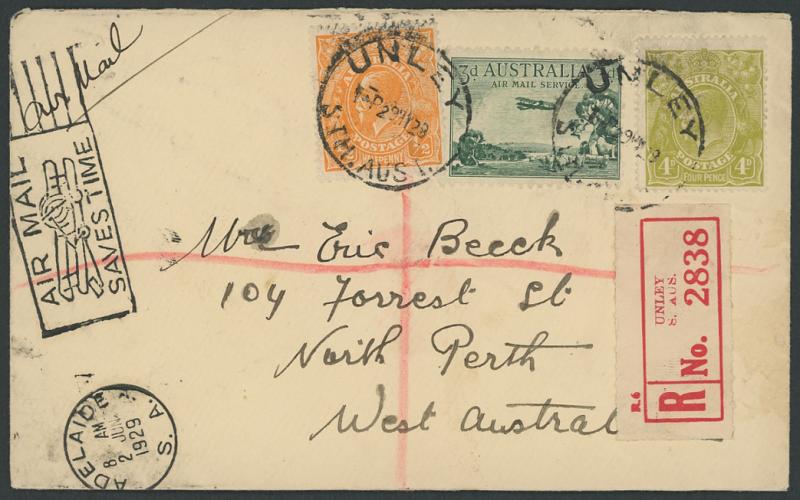 Air Mail
AIR MAIL
SAVES TIME
UNLEY
STH. AUST.
POSTAGE
3d AUSTRALIA 3d
AIR MAIL SERVICE
UNLEY
POSTAGE
4D FOUR PENCE 4D
Mrs Eric Beeck
104 Forrest St
North Perth
West Austral
UNLEY
S. AUS.
R.6
R No. 2838
ADELAIDE
8 AM
2 JUN
1929
S. A.